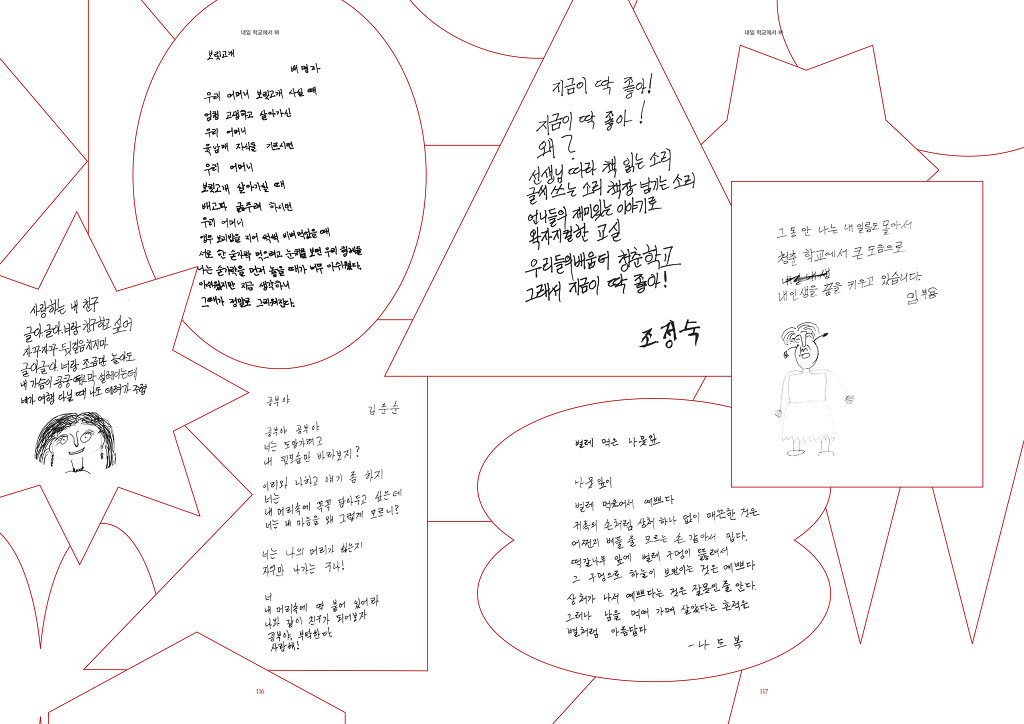 내일 학교에서 봐
보릿고개
배명자
우리 어머니 보릿고개 사실 때
엄청 고생하고 살아가신
우리 어머니
육남매 자식들 기르시면
우리 어머니
보릿고개 살아가실 때
배고파 굶주려 하시면
우리 어머니
열무 보리밥을 지어 썩썩 비벼먹었을 때
서로 한 숟가락 먹으려고 눈치를 보면 우리 형제들
나는 숟가락을 먼저 놓을 때가 너무 아쉬웠다.
아쉬웠지만 지금 생각하니
그때가 정말로 그리워진다.
사랑하는 내 친구
글아.글아.너랑 친구하고 싶어
자꾸자꾸 뒷걸음치지마
글아글아 너랑 조금만 놀아도
내 가슴이 쿵쿵 설레이는데
내가 여행 다닐 때 나도 데려가 주렴
공부야
김춘순
공부야 공부야
너는 도망가려고
내 뒷모습만 바라보지?
이리와! 나하고 얘기 좀 하지
너는
내 머리속에 꼭꼭 담아두고 싶은데
너는 내 마음을 왜 그렇게 모르니?
너는 나의 머리가 싫은지
자꾸만 나가는 구나!
너
내 머리속에 딱 붙어 있어라
나와 같이 친구가 되어보자
공부야, 부탁한다.
사랑해!
116
내일 학교에서 봐
지금이 딱 좋아!
지금이 딱 좋아!
왜?
선생님 따라 책 읽는 소리
글씨 쓰는 소리 책장 넘기는 소리
언니들의 재미있는 이야기로
왁자지껄한 교실
우리들의 배움터 청춘학교
그래서 지금이 딱 좋아!
조정숙
그동안 나는 내 이름도 몰라서
청춘 학교에서 큰 도움으로
내인생을 꿈을 키우고 있습니다.
임부용
벌레 먹은 나뭇잎
나뭇잎이
벌레 먹혀서 예쁘다
귀족의 손처럼 상처 하나 없이 매끈한 것은
어쩐지 베풀 줄 모르는 손 같아서 밉다.
떡갈나무 잎에 벌레 구멍이 뚫려서
그 구멍으로 하늘이 보이는 것은 예쁘다
상처가 나서 예쁘다는 것은 잘못인 줄 안다.
그러나 남을 먹여 가며 살았다는 흔적은
별처럼 아름답다
-나 도 복
117